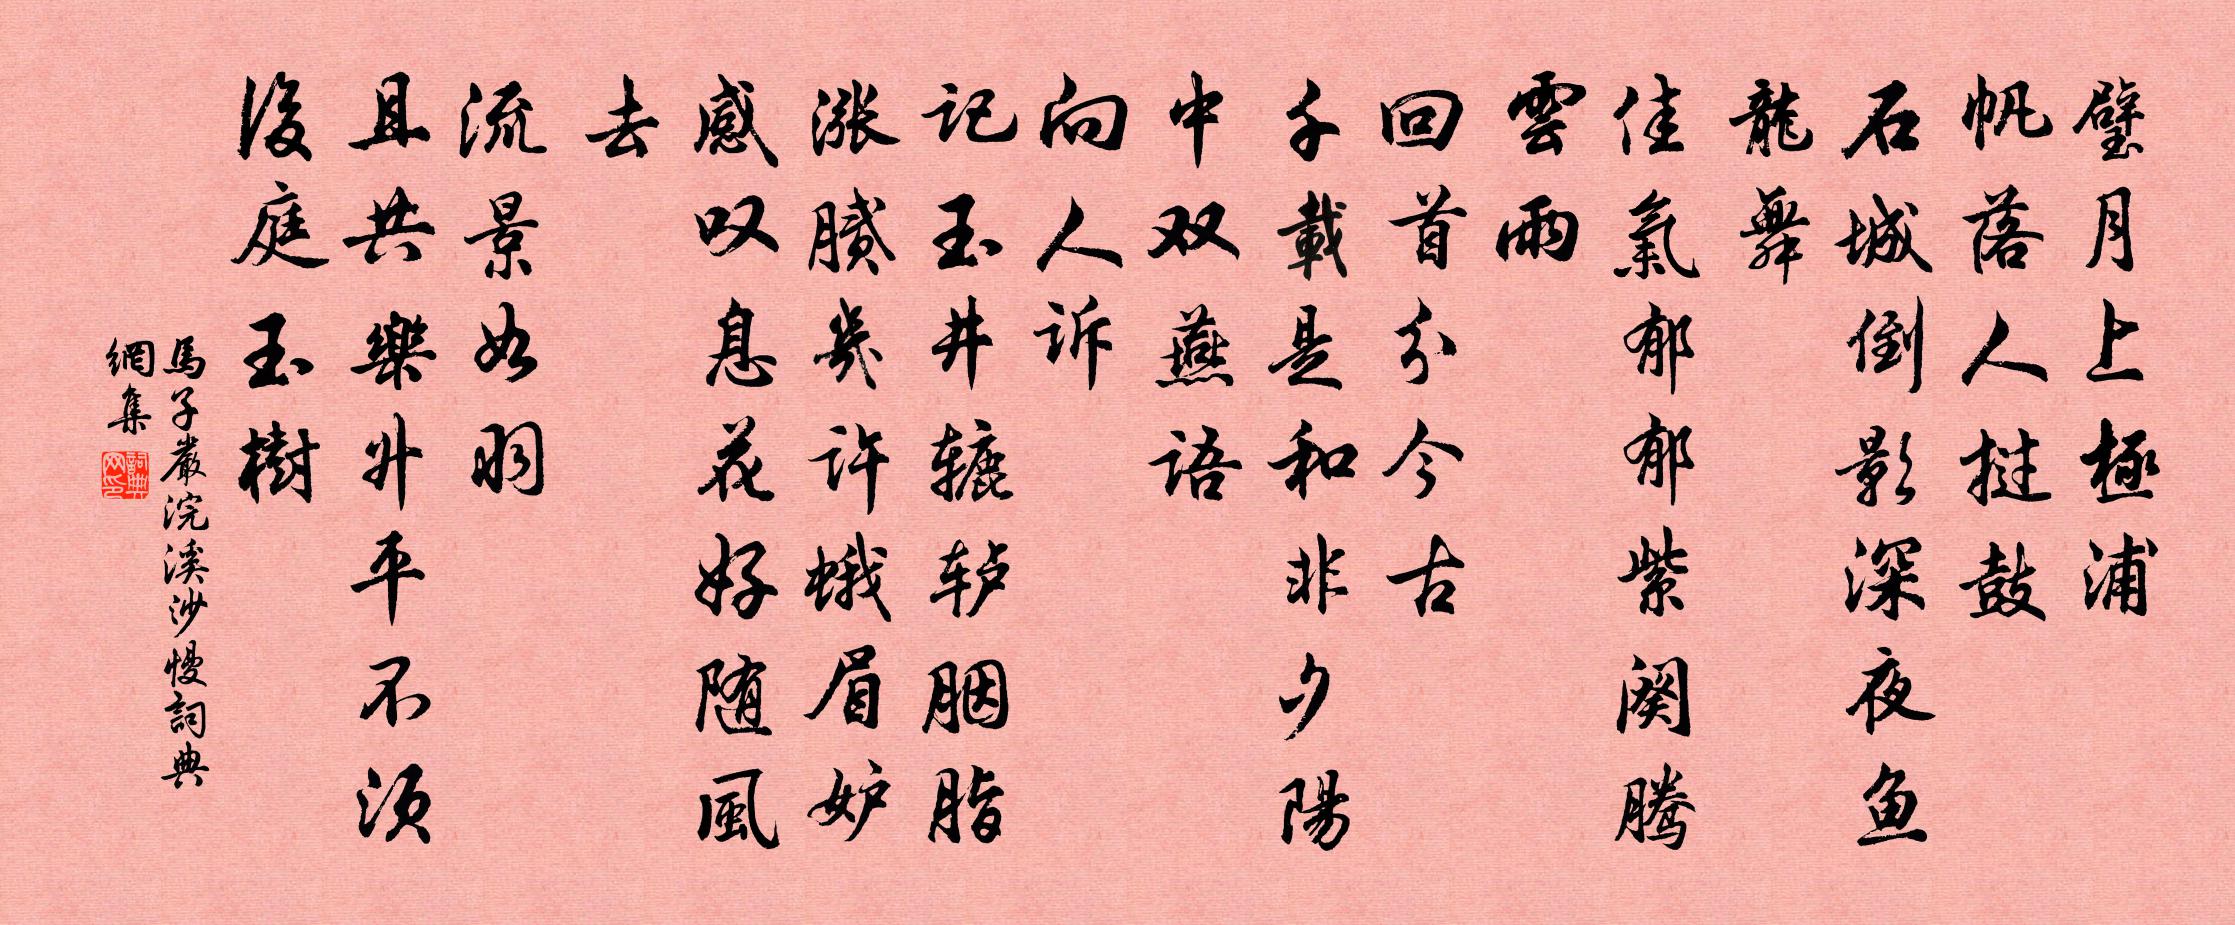 璧月上極浦
帆落人挝鼓
石城倒影深夜鱼
龍舞
佳氣郁郁紫阙腾
雲雨
回首分今古
千載是和非夕陽
中双燕语
向人诉
记玉井辘轳胭脂
涨腻幾许蛾眉妒
感叹息花好随風
去
流景如羽
且共樂升平不须
後庭玉樹
馬子嚴浣溪沙慢詞典
網集
詞典网集